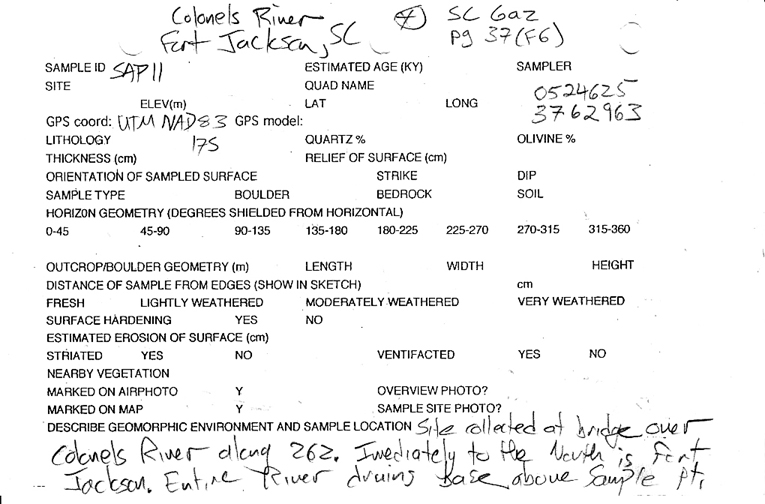 Colonels River ④ SC Gaz
Fort Jackson, SC pg 37 (F6)
SAMPLE ID SAP11 ESTIMATED AGE (KY) SAMPLER
SITE QUAD NAME 0524625
ELEV(m) LAT LONG 3762963
GPS coord: UTM NAD83 GPS model:
LITHOLOGY 17S QUARTZ % OLIVINE %
THICKNESS (cm) RELIEF OF SURFACE (cm)
ORIENTATION OF SAMPLED SURFACE STRIKE DIP
SAMPLE TYPE BOULDER BEDROCK SOIL
HORIZ0N GEOMETRY (DEGREES SHIELDED FROM HORIZONTAL)
0-45 45-90 90-135 135-180 180-225 225-270 270-315 315-360
OUTCROP/BOULDER GEOMETRY (m) LENGTH WIDTH HEIGHT
DISTANCE OF SAMPLE FROM EDGES (SHOW IN SKETCH) cm
FRESH LIGHTLY WEATHERED MODERATELY WEATHERED VERY WEATHERED
SURFACE HARDENING YES NO
ESTIMATED EROSION OF SURFACE (cm)
STRIATED YES NO VENTIFACTED YES NO
NEARBY VEGETATION
MARKED ON AIRPHOTO Y OVERVIEW PHOTO?
MARKED ON MAP Y SAMPLE SITE PHOTO?
DESCRIBE GEOMORPHIC ENVIRONMENT AND SAMPLE LOCATION Site collected at bridge over
Colonels River along 262. Imediately to the North is Fort
Jackson. Entire River drains base above sample pt.